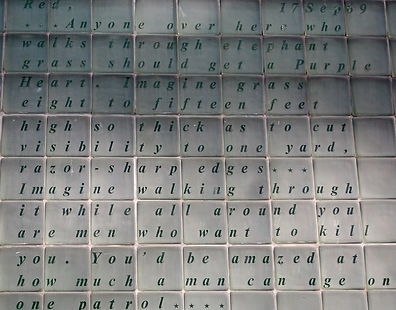 Red, 17Sep69
...Anyone over here who
walks through elephant
grass should get a Purple
Heart. Imagine grass
eight to fifteen feet
high so thick as to cut
visibility to one yard,
razor-sharp edges...
Imagine walking through
it while all around you
are men who want to kill
you. You'd be amazed at
how much a man can age on
one patrol....